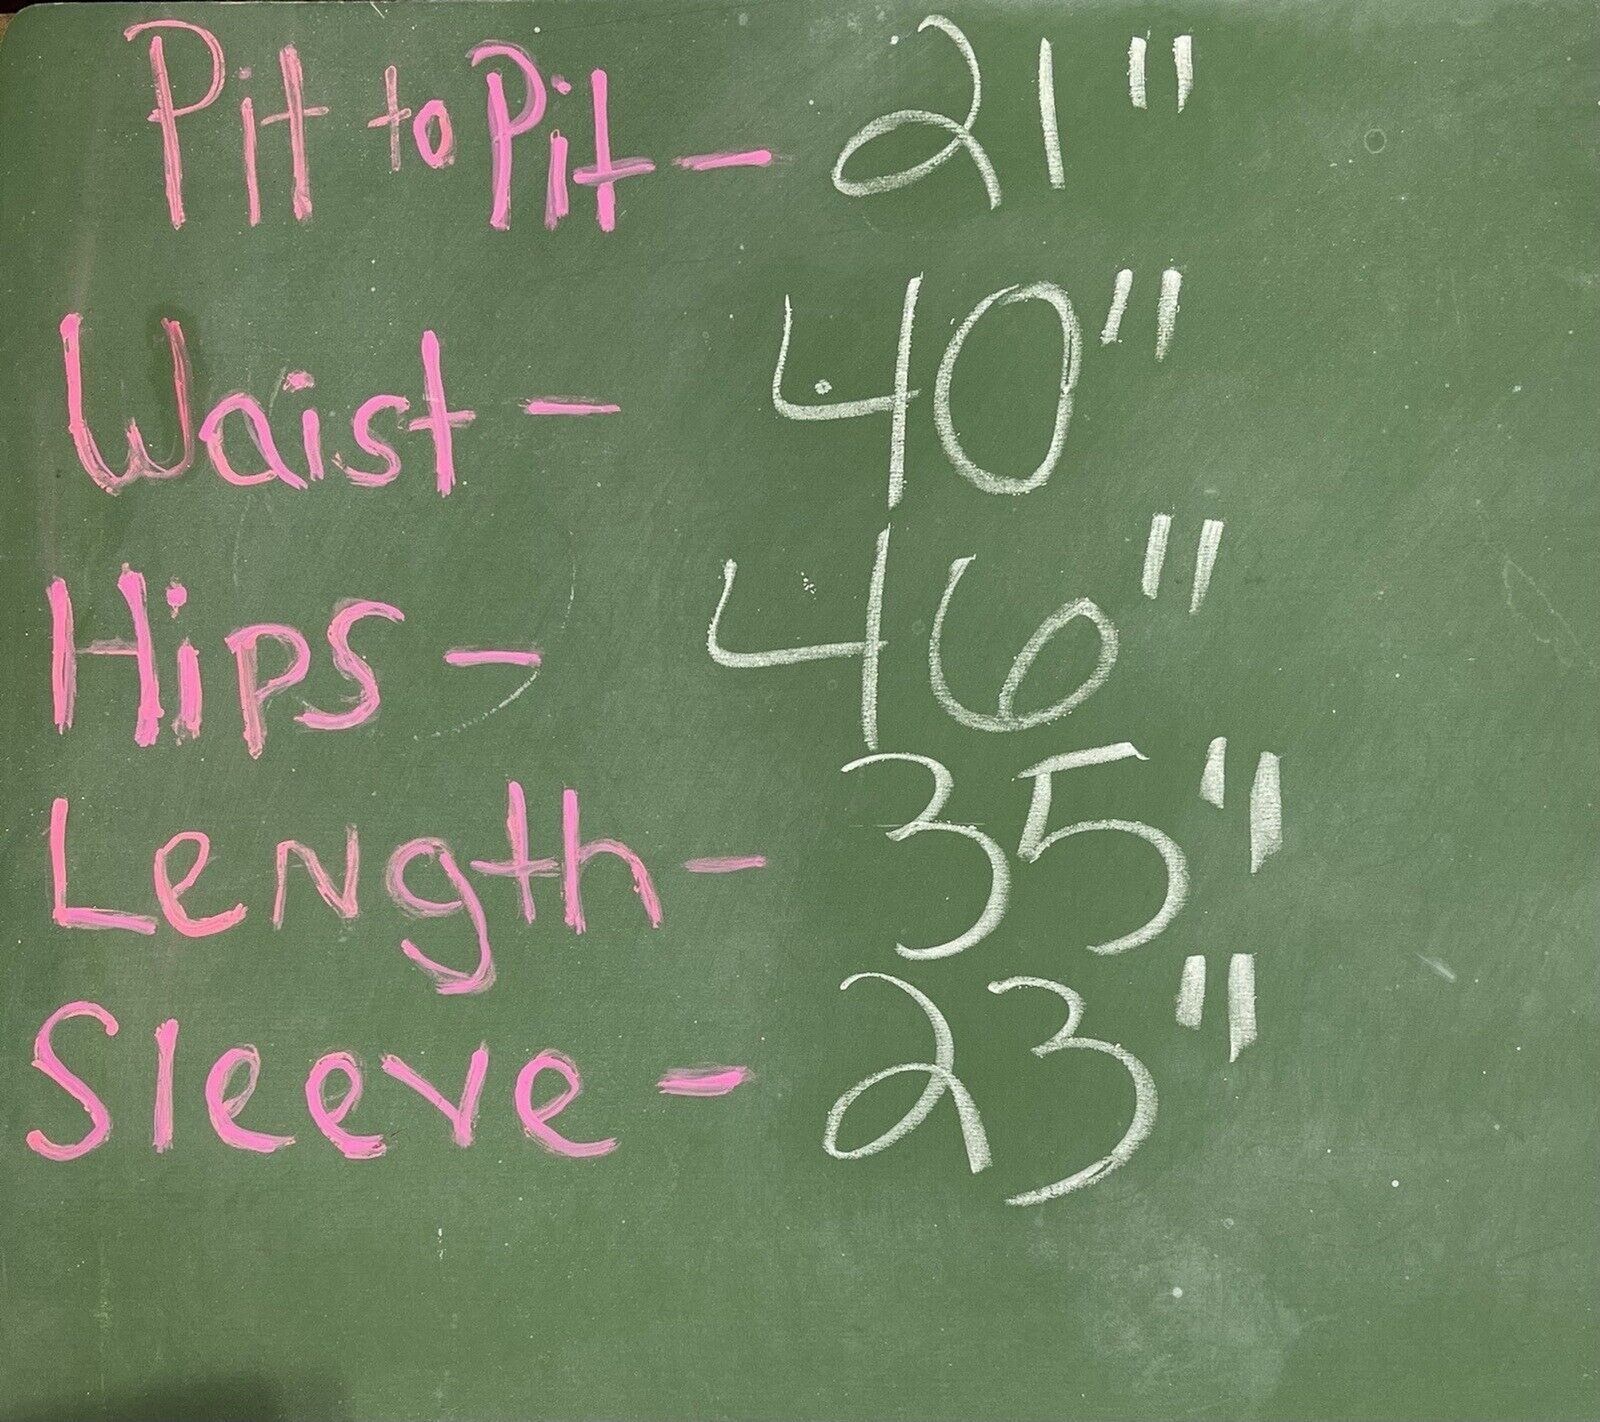 Pit to Pit - 21"
Waist - 40"
Hips - 46"
Length - 35"
Sleeve - 23"